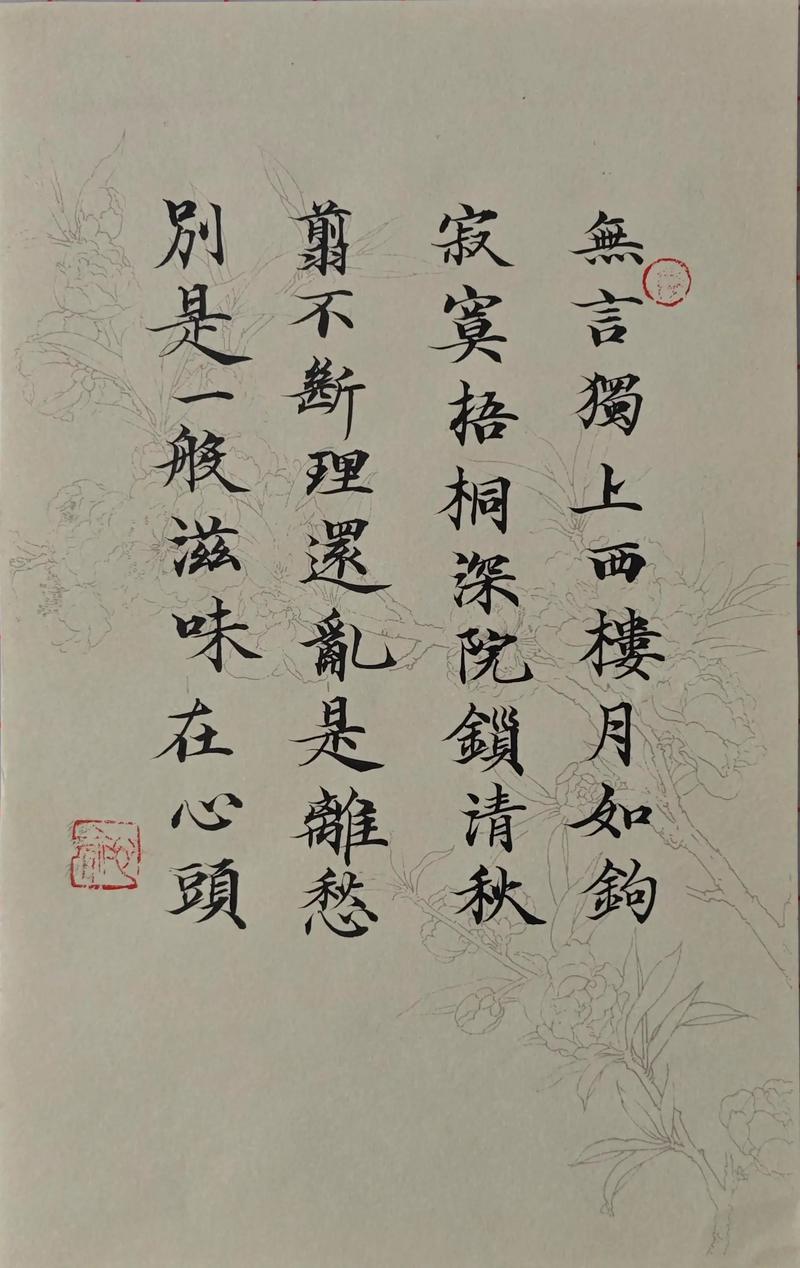 無言獨上西樓月如鉤
寂寞梧桐深院鎖清秋
翦不斷理還亂是離愁
別是一般滋味在心頭